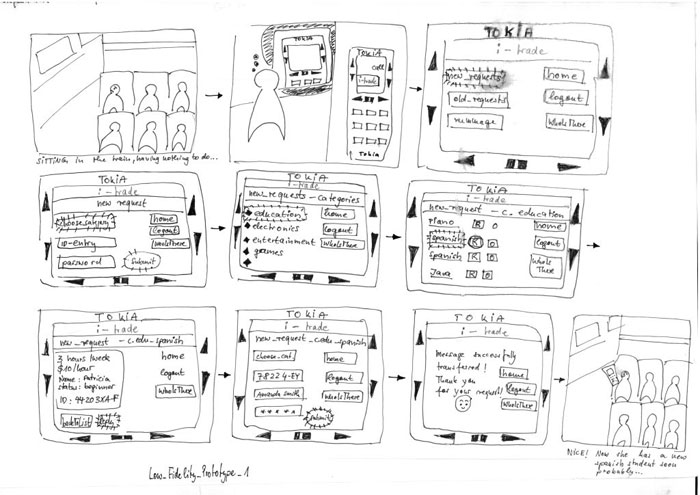 SITTING in the train, having nothing to do...
TOKIA
TOKIA
call
i-trade
Tokia
TOKIA
i - trade
new_requests
home
old_requests
logout
message
WhoIsThere
TOKIA
i - trade
new request
choose category
home
logout
ID-entry
WhoIsThere
password
Submit
TOKIA
i - trade
new_requests - categories
education
home
electronics
logout
entertainment
WhoIsThere
games
TOKIA
i - trade
new_request - c. education
Piano
R
O
home
Spanish
R
O
logout
Spanish
R
O
WhoIs
There
Java
R
O
TOKIA
i - trade
new_request - c.edu_spanish
3 hours/week
$10/hour
Name: Patricia
status: beginner
ID: 94203XA-F
home
logout
WhoIsThere
backToList
Reply
TOKIA
i - trade
new_request_c.edu_spanish
choose-cat
home
78224-EY
logout
Amanda Smith
WhoIsThere
*****
Submit
TOKIA
i - trade
Message successfully
transferred!
Thank you
for your request!
home
logout
WhoIsThere
NICE! Now she has a new
spanish student soon
probably...
Low_Fidelity_Prototype_1